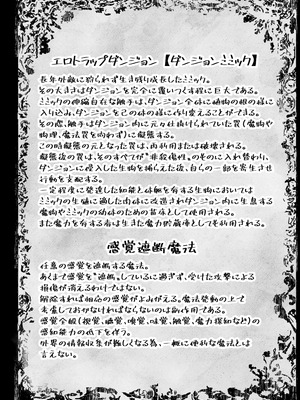 エロトラップダンジョン【ダンジョンミミック】
長年外敵に狩られず生き残り成長したミミック。
その大きさはダンジョン全体を覆いつくす程に巨大である。
ミミックの伸縮自在な触手は、ダンジョン全体に植物の根の様に
入り込み、ダンジョンを己の体の様に作り変えることができる。
その際、触手はダンジョン内に元々仕掛けられていた罠(魔物や
物理、魔法罠を問わず)に擬態する。
この時擬態の元となった罠は、再利用または破壊される。
擬態後の罠は、そのすべてが"非殺傷性"のそれに入れ替わり、
ダンジョンに侵入した生物を捕らえた後、自らの一部を寄生させ
行動を支配する。
一定程度に発達した知能と体躯を有する生物においては
ミミックの生殖に適した肉体に改造されダンジョン内に生息する
魔物やミミックの幼体のための苗床として使用される。
また魔力を有する者は生きた魔力貯蔵庫としても利用される。
感覚遮断魔法
任意の感覚を遮断する魔法。
あくまで感覚を"遮断"しているに過ぎず、受けた攻撃による
損傷が消えるわけではない。
解除すれば相応の感覚がよみがえる。魔法発動の上で
考慮しておかなければならないのは副作用である。
感覚全般(視覚、聴覚、嗅覚、味覚、触覚、魔力探知など)の
感知能力の低下を伴う。
外界の情報収集が難しくなる為、一概に便利な魔法とは
言えない。